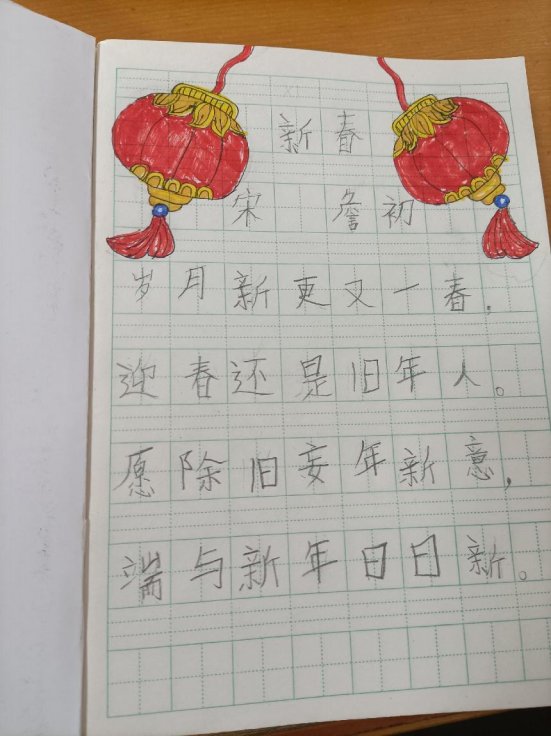 新春
宋 詹初
岁月新更又一春，
迎春还是旧年人。
愿除旧妄年新意，
端与新年日日新。